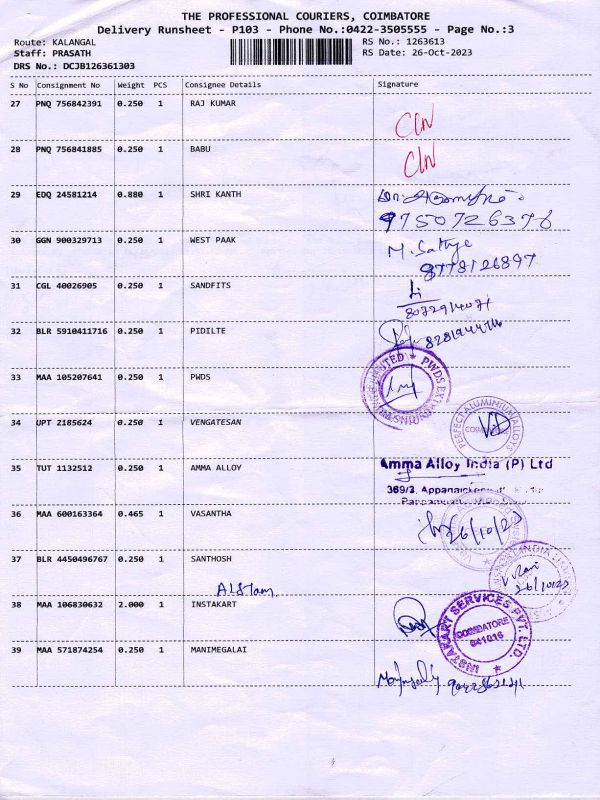 THE PROFESSIONAL COURIERS, COIMBATORE
Delivery Runsheet - P103 - Phone No.:0422-3505555 - Page No.:3
Route: KALANGAL RS No.: 1263613
Staff: PRASATH RS Date: 26-Oct-2023
DRS No.: DCJB126361303
S No Consignment No Weight PCS Consignee Details Signature
27 PNQ 756842391 0.250 1 RAJ KUMAR
28 PNQ 756841885 0.250 1 BABU
29 EDQ 24581214 0.880 1 SHRI KANTH
9750726376
30 GGN 900329713 0.250 1 WEST PAAK M. Sathye
8778126897
31 CGL 40026905 0.250 1 SANDFITS
32 BLR 5910411716 0.250 1 PIDILTE
33 MAA 105207641 0.250 1 PWDS
34 UPT 2185624 0.250 1 VENGATESAN PERFECT ALUMINIUM ALLOYS
35 TUT 1132512 0.250 1 AMMA ALLOY Amma Alloy India (P) Ltd
369/3,
36 MAA 600163364 0.465 1 VASANTHA 26/10/23
37 BLR 4450496767 0.250 1 SANTHOSH V. Rani
26/10/23
Alstom
38 MAA 106830632 2.000 1 INSTAKART INSTAKART SERVICES PVT. LTD.
COIMBATORE
641016
39 MAA 571874254 0.250 1 MANIMEGALAI